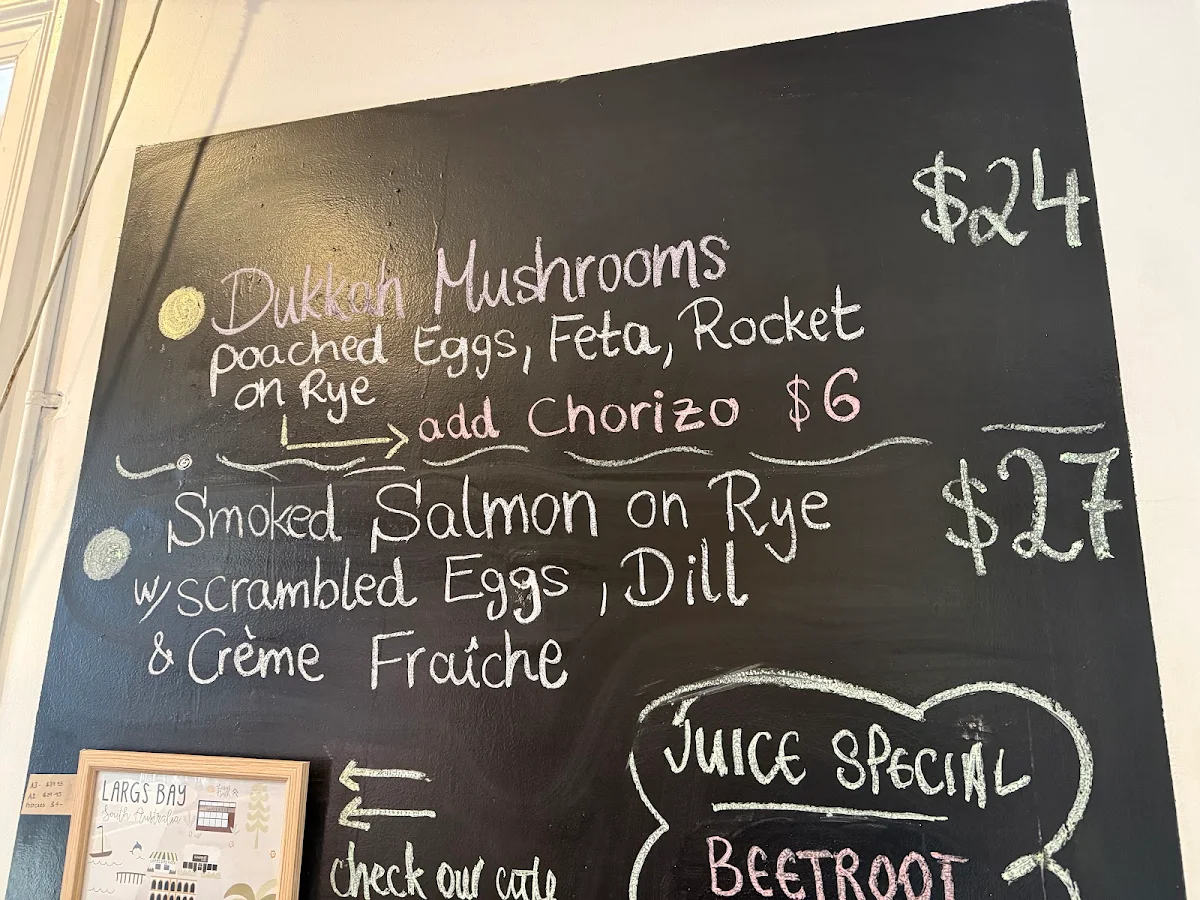 $24
Dukkah Mushrooms
poached Eggs, Feta, Rocket
on Rye
add Chorizo $6
Smoked Salmon on Rye $27
w/ scrambled Eggs, Dill
& Crème Fraîche
JUICE SPECIAL
BEETROOT
check our cute
LARGS BAY
South Australia